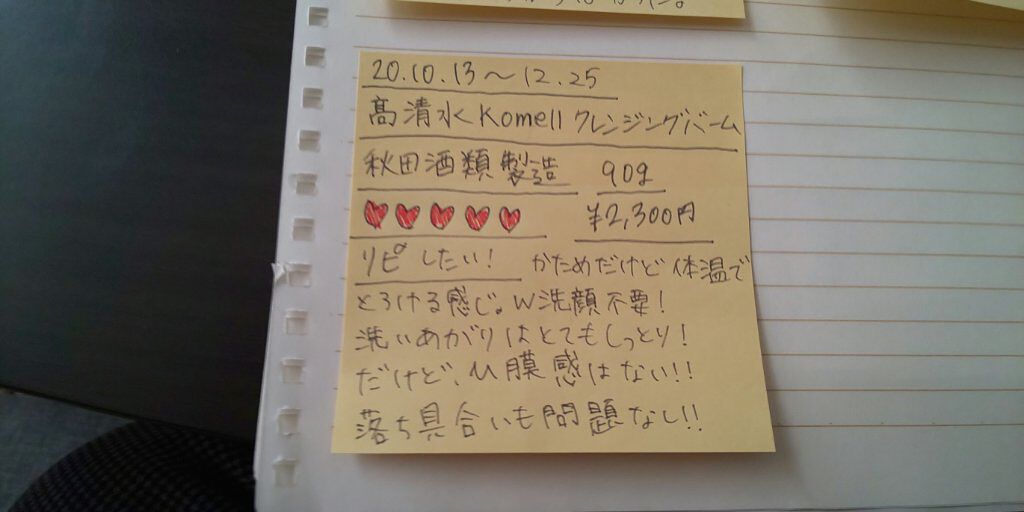 20.10.13〜12.25
高清水Komellクレンジングバーム
秋田酒類製造 90g
¥2,300円
リピしたい! かためだけど体温で
とろける感じ。W洗顔不要!
洗いあがりはとてもしっとり!
だけど、ひ膜感はない!!
落ち具合いも問題なし!!